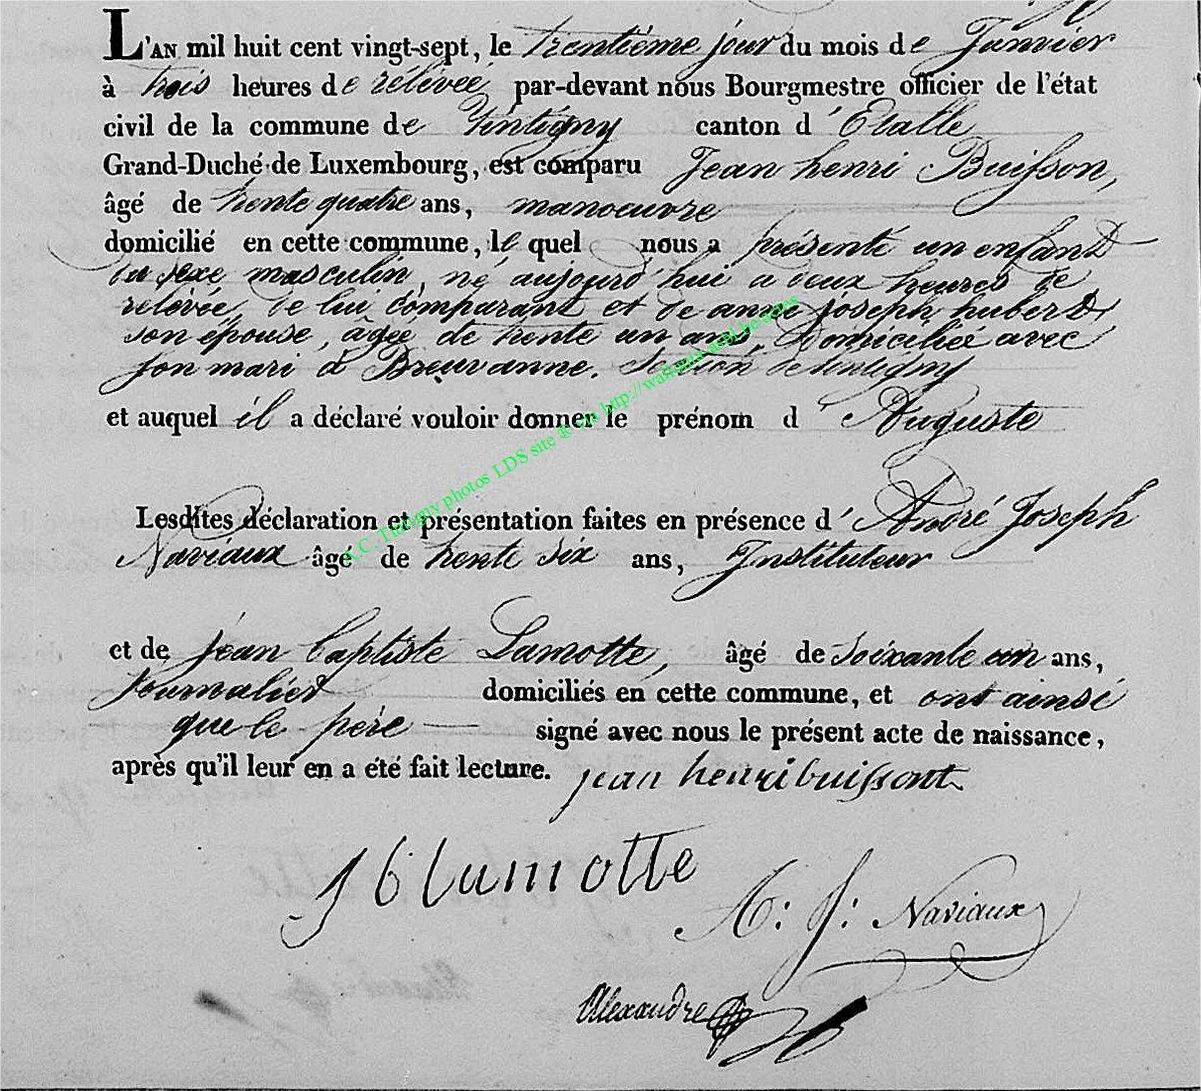 L'AN mil huit cent vingt-sept, le trentième jour du mois de Janvier
à trois heures de relévée par-devant nous Bourgmestre officier de l'état
civil de la commune de Tintigny canton d'Etalle
Grand-Duché de Luxembourg, est comparu Jean henri Buisson,
âgé de trente quatre ans, manoeuvre
domicilié en cette commune, le quel nous a présenté un enfant
du sexe masculin, né aujourd'hui a deux heures de
relévée, de lui comparant et de anne joseph hubert
son épouse, âgée de trente un ans, Domiciliée avec
son mari à Breuvanne. Section de tintigny
et auquel il a déclaré vouloir donner le prénom d'Auguste
Lesdites déclaration et présentation faites en présence d'André Joseph
Naviaux âgé de trente six ans, Instituteur
et de jean baptiste Lamotte, âgé de soixante un ans,
journalier domiciliés en cette commune, et ont ainsi
que le père signé avec nous le présent acte de naissance,
après qu'il leur en a été fait lecture. jean henri buissont
J b lamotte
A: J: Naviaux
Alexandre
A.C. Tintigny photos LDS site & via http://wallonia-asbl.be